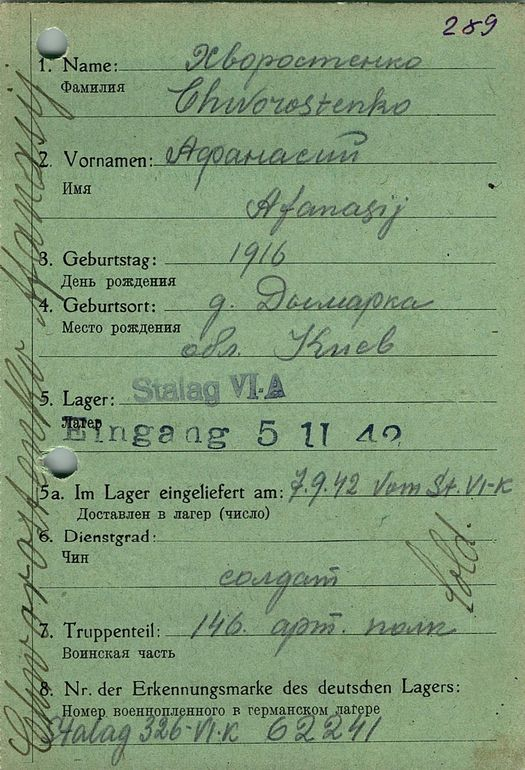 289
1. Name: Хворостенко
Фамилия
Chworostenko
2. Vornamen: Афанасий
Имя
Afanasij
3. Geburtstag: 1916
День рождения
4. Geburtsort: д. Дымарка
Место рождения
обл. Киев
5. Lager: Stalag VI-A
Лагер
Eingang 5 11 42
5a. Im Lager eingeliefert am: 7.9.42 vom St. VI-K
Доставлен в лагер (число)
6. Dienstgrad:
Чин
солдат
Sold.
7. Truppenteil: 146. арт. полк
Воинская часть
8. Nr. der Erkennungsmarke des deutschen Lagers:
Номер военнопленного в германском лагере
Stalag 326-VI-K 62241
Chworostenko Afanasij